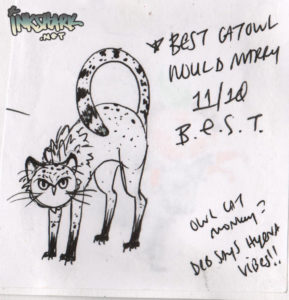 the INKSHARK
.NET
* BEST CATOWL
WOULD MARRY
11/10
B.e.S.T.
OWL CAT
MONKEY?
DEB SAYS HYENA
VIBES!!